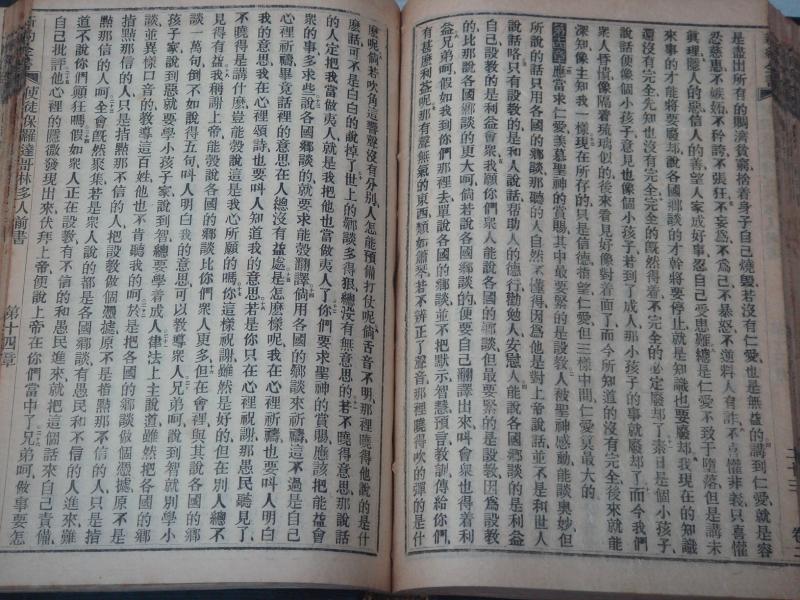 是盡出所有的賙濟貧窮捨着身子自己燒毀若沒有仁愛也是無益的講到仁愛就是容
忍慈惠不嫉妬不矜誇不張狂不妄爲不爲己不暴怒不逆料人有詐不喜懽非義只喜懽
眞理隱人的惡信人的善望人家成好事忍自己受患難總是仁愛不致于墮落但是講未
來事的才能將要廢却說各國鄉談的才幹將要停止就是知識也要廢却我現在的知識
還沒有完全先知也沒有完全完全的旣然得着不完全的必定廢却了素日是個小孩子
說話便像個小孩子意見也像個小孩子若到了成人那小孩子的事就廢却了而今我們
衆人昏懞像隔着琉璃似的後來看見好像對着面了而今所知道的沒有完全後來就能
深知像主知我一樣現在所存的只是信德指望仁愛但三樣中間仁愛莫最大的
第十四章應當求仁愛羨慕聖神的賞賜其中最要緊的是設教人被聖神感動能談奧妙但
所說的話只用各國的鄉談那聽的人自然不懂得因爲他是對上帝說話並不是和世人
說話咯只有設教的是和人說話帮助人的德行勸勉人安慰人能說各國鄉談的是利益
自己設教的是利益會衆我願你們衆人能說各國鄉談但最要緊的是設教因爲設教
的比那說各國鄉談的更大呵倘若說各國鄉談的便要自己翻譯出來叫會衆也得着利
益兄弟呵假如我到你們那裡去單說各國的鄉談並不把默示智慧預言教訓傳給你們
有甚麽利益呢那有聲無氣的東西類如簫琴若不辨正了聲音那裡曉得吹的彈的是什
麽呢倘若吹角這響聲沒有分別人怎能預備打仗呢倘舌音不明那裡曉得他說的是什
麽話可不是白白的說掉了世上的鄉談多得狠總沒有無意思的若不曉得意思那說話
的人定把我當做夷人我就是把他也當做夷人了你們要求聖神的賞賜應該把能益會
衆的事多求些說各國鄉談的就要求能彀翻譯倘用各國的鄉談來祈禱這不過是自己
心裡祈禱畢竟話裡的意思在人總沒有益處是怎麼樣呢我在心裡祈禱也要叫人明白
我的意思我在心裡頌詩也要叫人知道我的意思若是你只在心裡祝謝那愚民聽見了
不曉得是講什麽豈能彀說這是我心所願的嗎你這樣祝謝雖然是好的但在別人總不
見得有益我稱謝上帝能彀說各國的鄉談比你們衆人更多但在會裡與其說各國的鄉
談一萬句倒不如說得五句叫人明白我的意思可以教導衆人兄弟呵說到智就別學小
孩子家說到惡就要學小孩子家說到智總要學着成人律法上主說道雖然把各國的鄉
談並異樣口音的教導這百姓他也不肯聽我的呵於是把各國的鄉談做個憑據原不是
指點那信的人只是指點那不信的人把設教做個憑據原不是指點那不信的人只是指
點那信的人呵全會旣然聚集若是衆人說的都是各國鄉談有愚民和不信的人進來雖
道不說你們癲狂嗎假如衆人正在設教有不信的和愚民進來就把這個話來自己責備
自己批評他心裡的隱微發現出來伏拜上帝便說上帝在你們當中了兄弟呵做事要怎
使徒保羅達哥林多人前書
第十四章